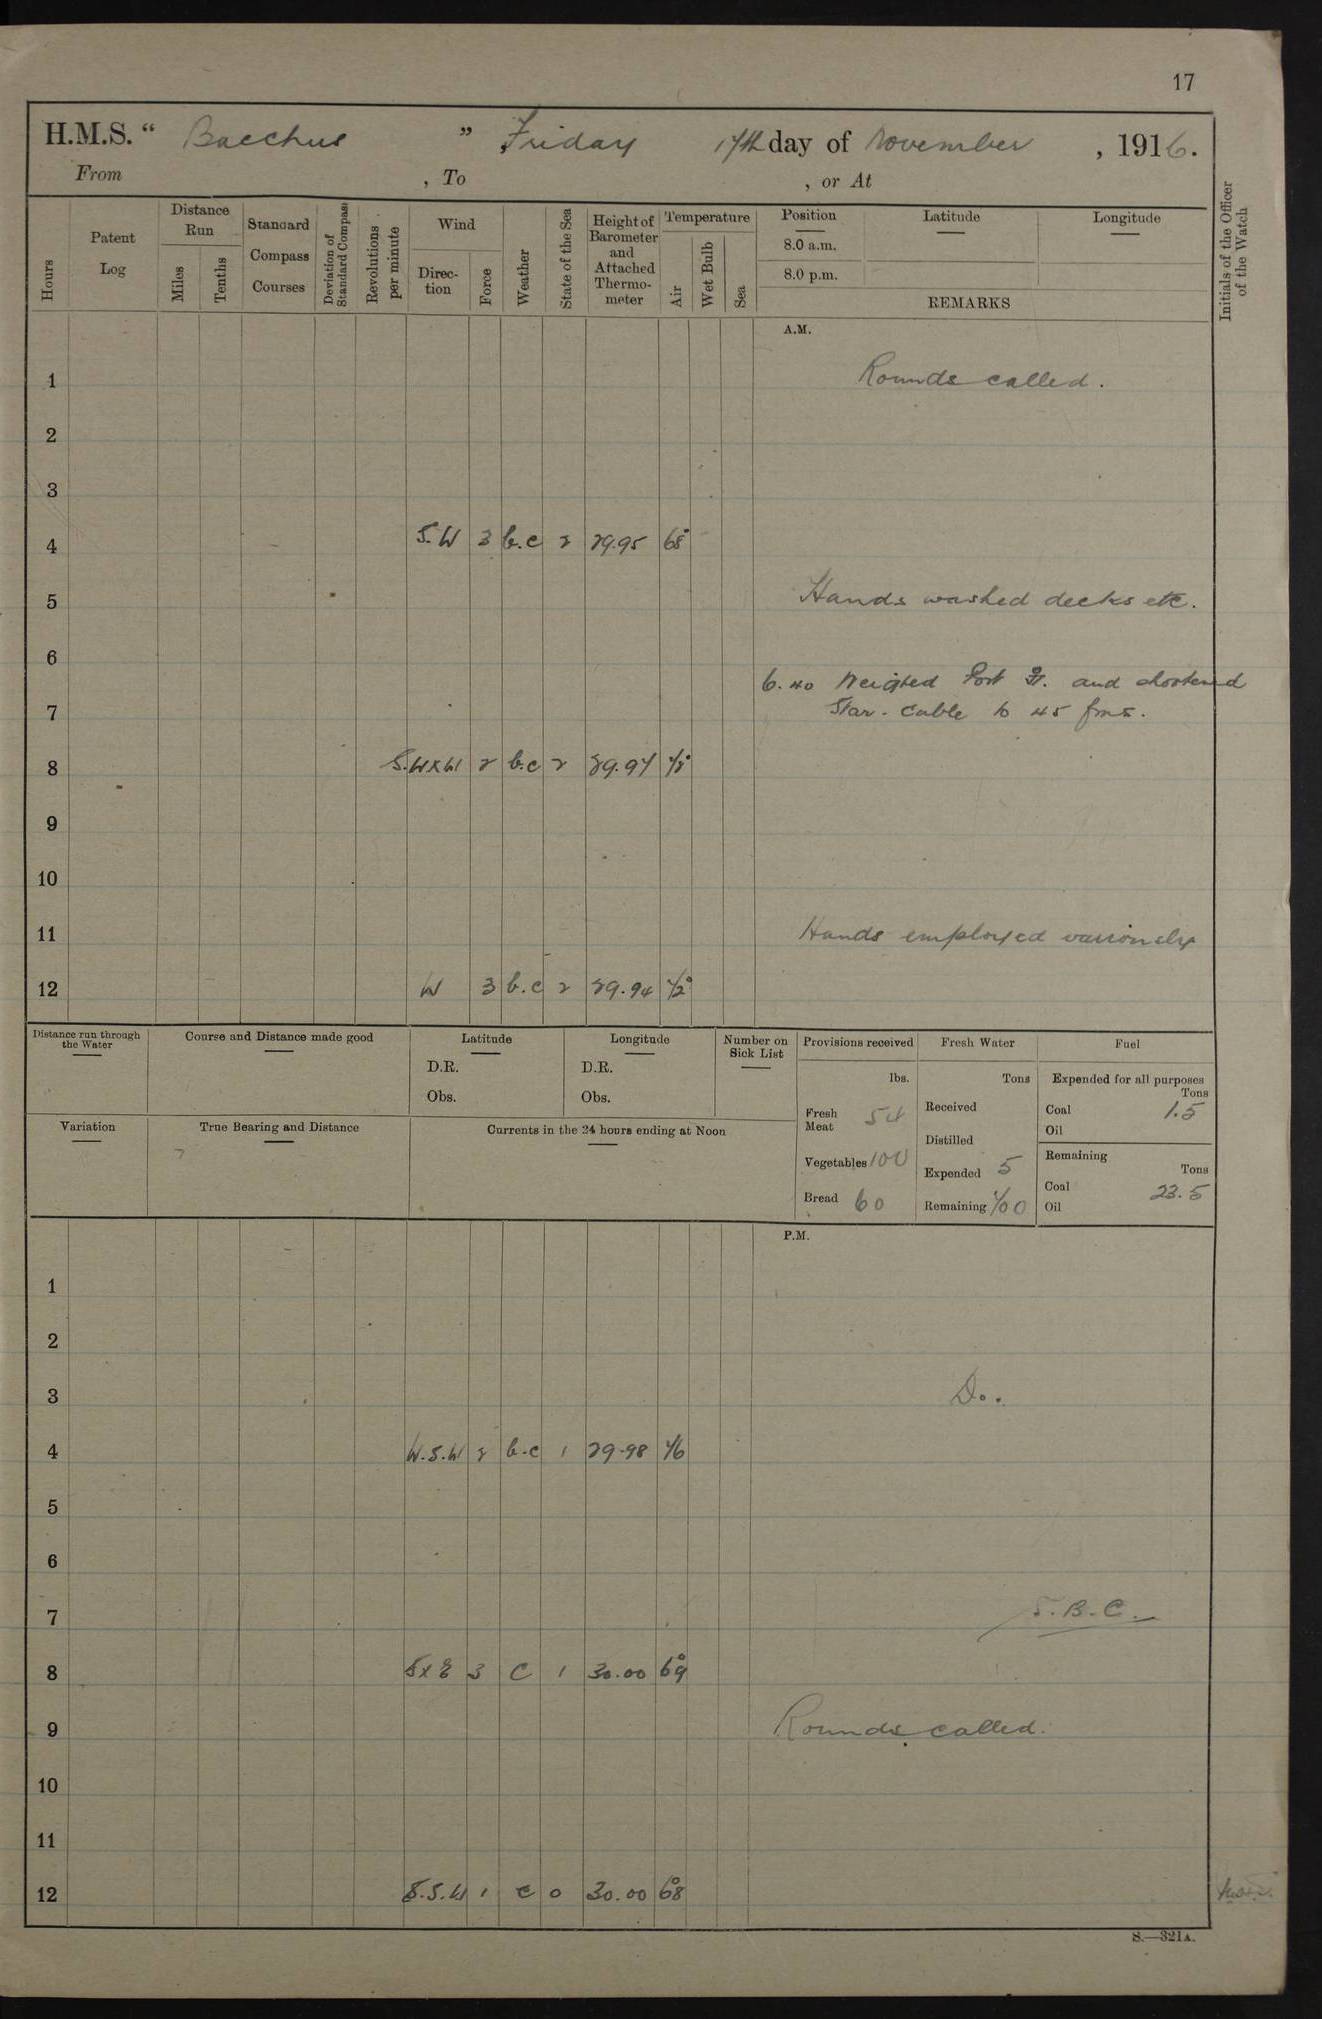 17
H.M.S. “ Bacchus ” Friday 17th day of November , 1916.
From , To , or At
Hours
Patent Log
Distance Run
Miles
Tenths
Standard Compass Courses
Deviation of Standard Compass
Revolutions per minute
Wind
Direc-tion
Force
Weather
State of the Sea
Height of Barometer and Attached Thermo-meter
Temperature
Air
Wet Bulb
Sea
Position Latitude Longitude
8.0 a.m.
8.0 p.m.
REMARKS
Initials of the Officer of the Watch
A.M.
1 Rounds called.
2
3
4 S.W 3 b.c 2 29.95 68°
5 Hands washed decks etc.
6
6.40 Weighed Port and shortened
7 Star. Cable to 45 fms.
8 S.W x W 2 b.c 2 29.97
9
10
11 Hands employed variously
12 W 3 b.c 2 29.94 72°
Distance run through the Water
Course and Distance made good
Latitude
D.R.
Obs.
Longitude
D.R.
Obs.
Number on Sick List
Provisions received
lbs.
Fresh Meat 54
Vegetables 100
Bread 60
Fresh Water
Tons
Received
Distilled
Expended 5
Remaining 700
Fuel
Expended for all purposes
Tons
Coal 1.5
Oil
Remaining
Tons
Coal 23.5
Oil
Variation
True Bearing and Distance
Currents in the 24 hours ending at Noon
P.M.
1
2
3 Do.
4 W.S.W 2 b.c 1 29.98 76
5
6
7 S.B.C.
8 S x E 3 C 1 30.00 69°
9 Rounds called.
10
11
12 S.S.W 1 c 0 30.00 68°
S.—321A.